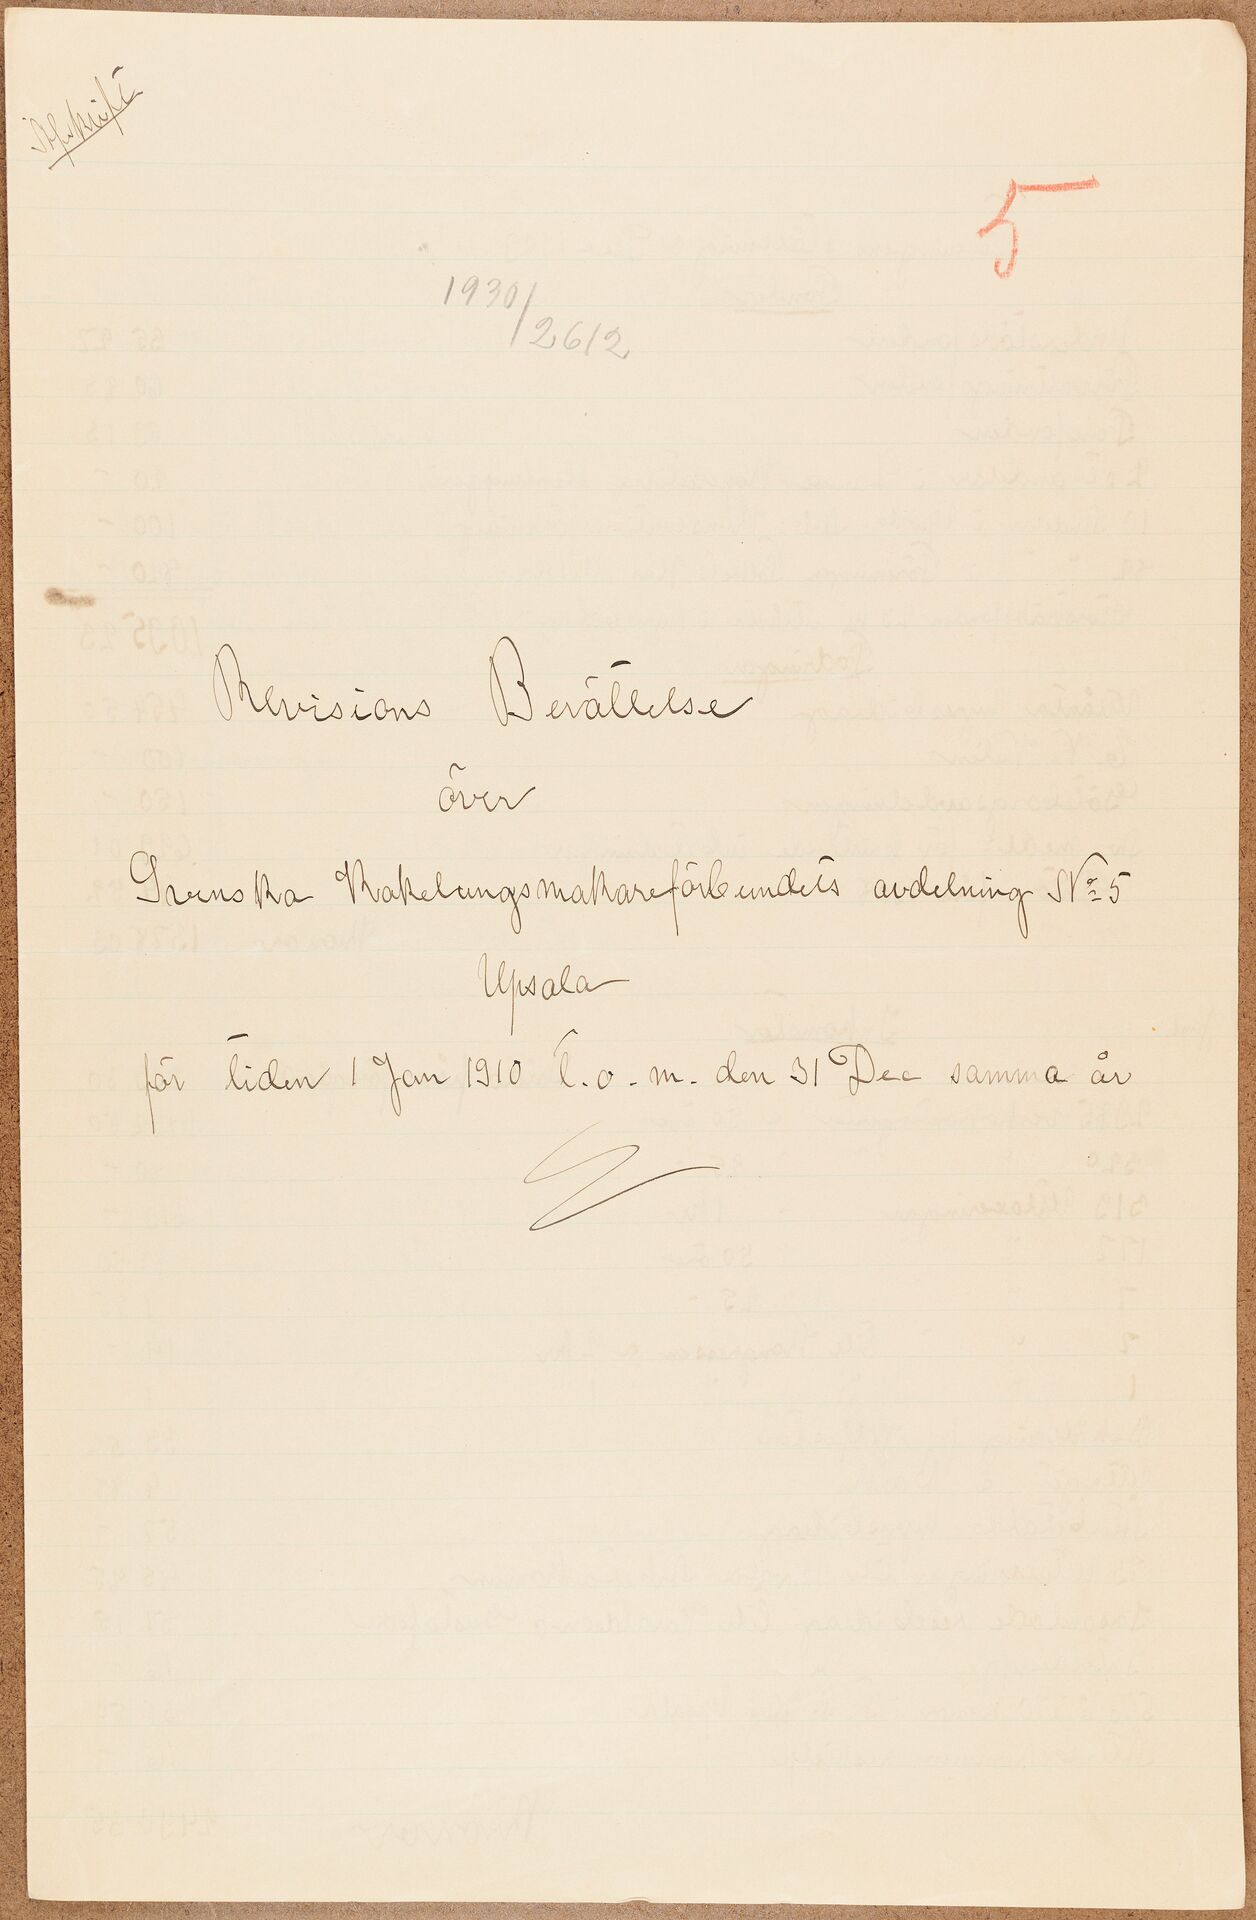 Afskrift
5
1930/2612
Revisions Berättelse
över
Svenska Kakelungsmakareförbundets avdelning No 5
Upsala
för tiden 1 Jan 1910 t.o.m. den 31 Dec samma år